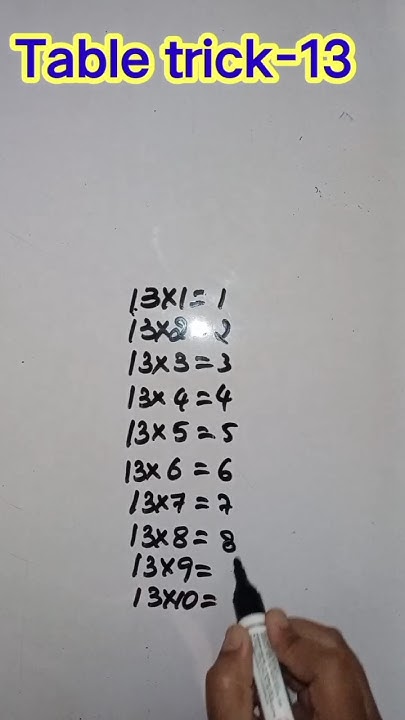 Table trick-13
13×1=1
13×2=2
13×3=3
13×4=4
13×5=5
13×6=6
13×7=7
13×8=8
13×9=
13×10=